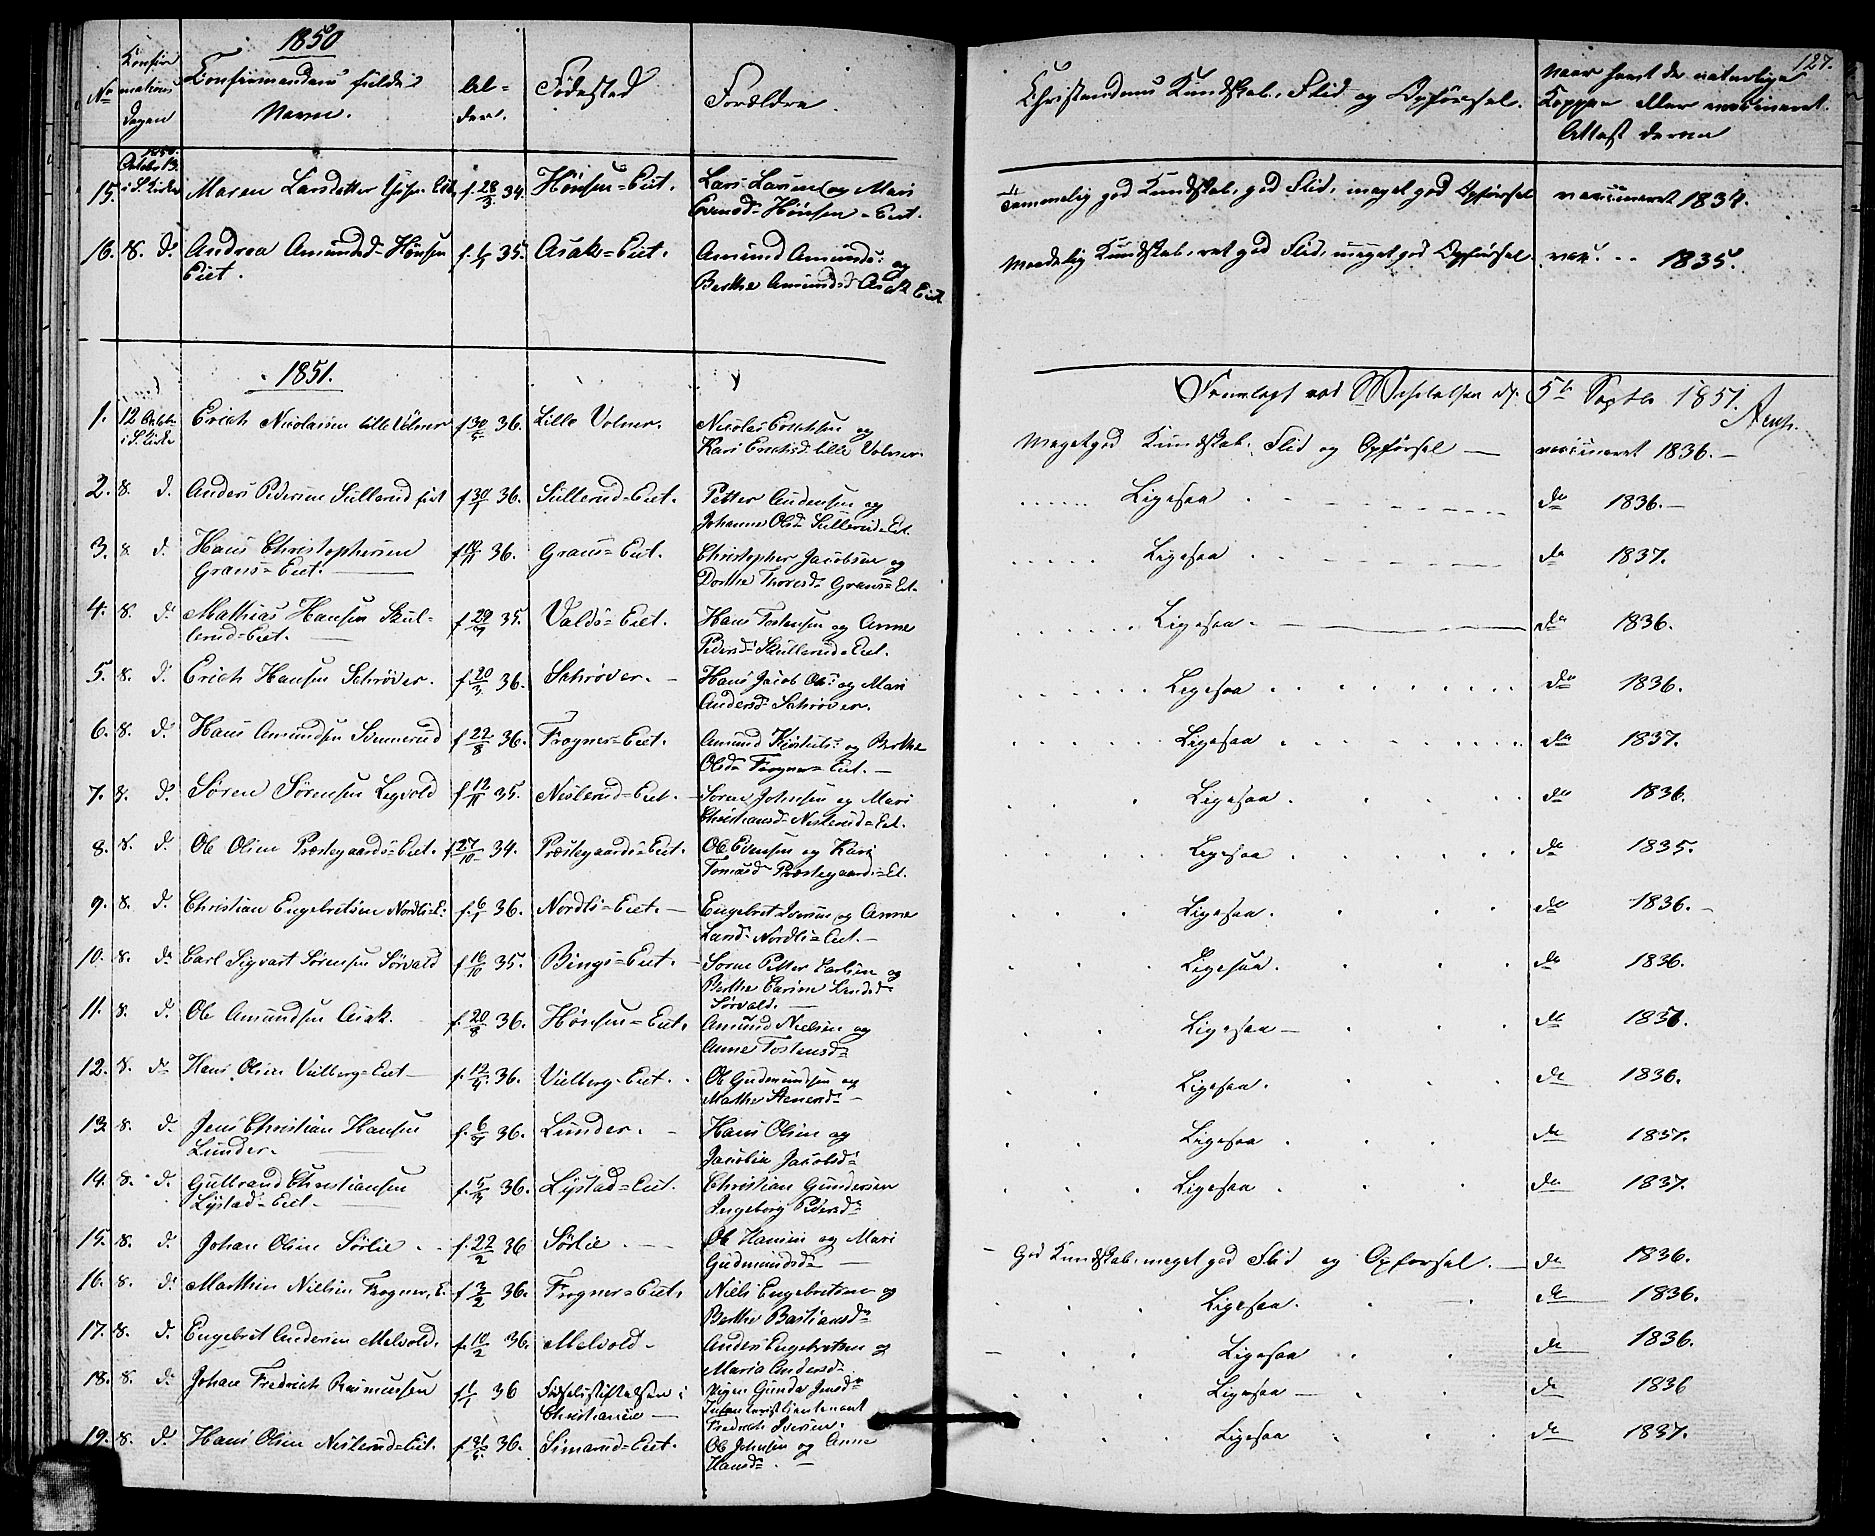 1850
127.
No Konfir mations Dagen
Konfirmandens fulde Navn.
Al- der.
Fødested
Forældre.
Christendoms Kundskab, Flid og Opførsel.
Naar havt de naturlige Kopper eller vaccineret. Attest derom
15. 1850 Octobr 13 i S. Kirke Maren Larsdatter Eiet f. 28/3 34. Hønsen=Eiet. Lars Larsen og Mari Evensd. Hønsen=Eiet. Temmelig god Kundskab, god Flid, meget god Opførsel vaccineret 1834.
16. 8. d. Andrea Amundsd. Hønsen Eiet. 35. Asak=Eiet. Amund Amunds. og Berthe Amundsd. Asak Eiet Maadelig Kundskab, ret god Flid, meget god Opførsel vac. 1835.
1851.
Fremlagt ved Visitatsen d. 5t Septb 1851. Arup.
1. 12 Octobr i S. Kirke Erich Nicolaisen Lille Volner f. 30/5 36. Lille Volner. Nicolai Erichsen og Kari Erichsd. Lille Volner. Meget god Kundskab, Flid og Opførsel vaccineret 1836.
2. 8. d. Anders Pedersen Sullerud Eiet 36. Sullerud=Eiet. Petter Andersen og Johanne Olsd. Sullerud=Et. Ligesaa do 1836.
3. 8. d. Hans Christophersen Graus=Eiet. 36. Graus=Eiet. Christopher Jacobsen og Dorthe Thoresd. Graus=Et. Ligesaa do 1837.
4. 8. d. Mathias Hansen Skul- lerud=Eiet. 35. Valds=Eiet. Hans Tostensen og Anne Pedersd. Skullerud=Eiet. Ligesaa. do 1836.
5. 8. d. Erich Hansen Schrøver. f. 20/3 36. Schrøver. Hans Jacob Ols. og Mari Andersd. Schrøver. Ligesaa do 1836.
6. 8. d. Hans Amundsen f. 22/8 36. Frogner=Eiet. Amund og Berthe Olsd. Frogner=Eiet. Ligesaa do 1837.
7. 8. d. Søren Sørensen Legvold f. 12/11 35. Neslerud=Eiet. Søren Johnsen og Mari Christiansd. Neslerud=Et. Ligesaa. do 1836.
8. 8. d. Ole Olsen Præstegaards=Eiet. f. 27/10 34. Præstegaards=Eiet. Ole Evensen og Kari Tomasd. Præstegaards=Et. Ligesaa do 1835.
9. 8. d. Christian Engebretsen Nordli=E. 36. Nordli=Eiet. Engebret Iversen og Anne Larsd. Nordli=Eiet. Ligesaa. do 1836.
10. 8. d. Carl Sigvart Sørensen Sørvald f. 16/10 35. Bings=Eiet. Søren Petter Carlsen og Berthe Carine Sørvald. Ligesaa. do 1836.
11. 8. d. Ole Amundsen Asak. f. 20/8 36. Hønsen=Eiet. Amund Nielsen og Anne Tostensd. Ligesaa do
12. 8. d. Hans Olsen Vulberg=Eiet 36. Vulberg=Eiet. Ole Gudmundsen og Mathe Ligesaa. do 1836.
13. 8. d. Jens Christian Hansen Lunder. 36. Lunder. Hans Olsen og Jacobine Jacobsd. Ligesaa do 1837.
14. 8. d. Gulbrand Christiansen Lystad=Eiet. 36. Lystad=Eiet. Christian Gundersen Ingeborg Pedersd. Ligesaa do 1837.
15. 8. d. Johan Olsen Sørlie. f. 22/2 36 Sørlie. Ole Hansen og Mari Gudmundsd. God Kundskab, meget god Flid og Opførsel. do 1836.
16. 8. d. Marthin Nielsen Frogner. E. f. 3/2 36. Frogner=Eiet. Niels Engebretsen og Berthe Bastiansd. Ligesaa. do 1836.
17. 8. d. Engebret Andersen Melvold. f. 10/2 36. Melvold. Anders Engebretsen og Maria Andersd. Ligesaa do 1836.
18. 8. d. Johan Fredrich Rasmussen 36 Fødselsstiftelsen i Christiania Pigen Gunda Jensd. Fredrich Iversen. Ligesaa do 1836
19. 8. d. Hans Olsen Neslerud=Eiet. 36. Simarud=Eiet. Ole Johnsen og Anne Hansd. Ligesaa do 1837.